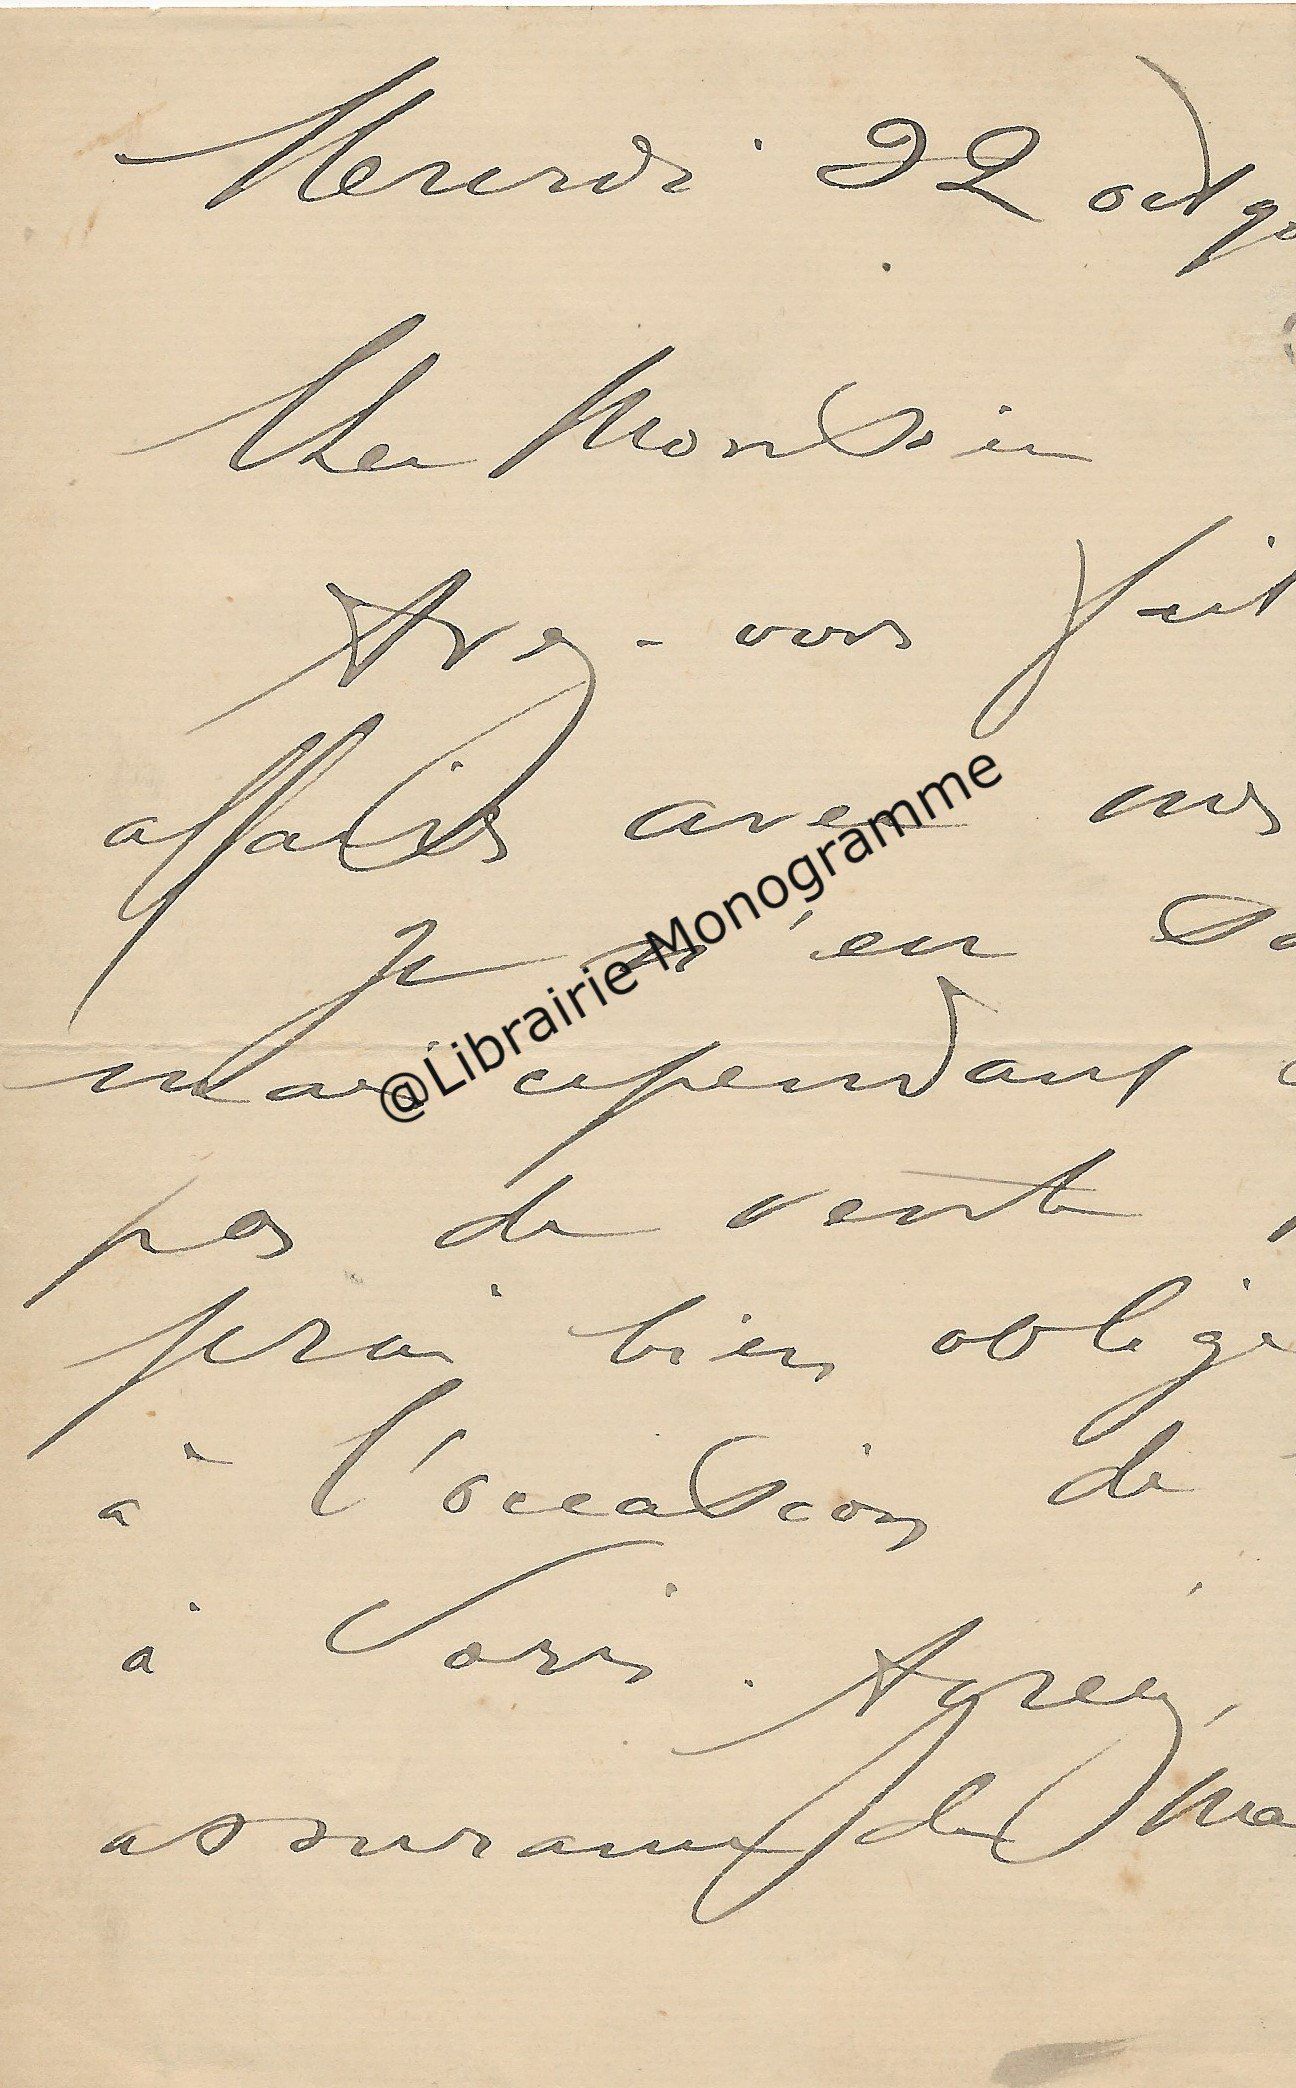 Mercredi 22 oct 90
Cher Monsieur
Avez-vous fait
affaires avec mes
je n'en
mais cependant
pas de vente
serai bien obligé
à l'occasion de
à Paris. Agréez,
assurance de ma
@Librairie Monogramme